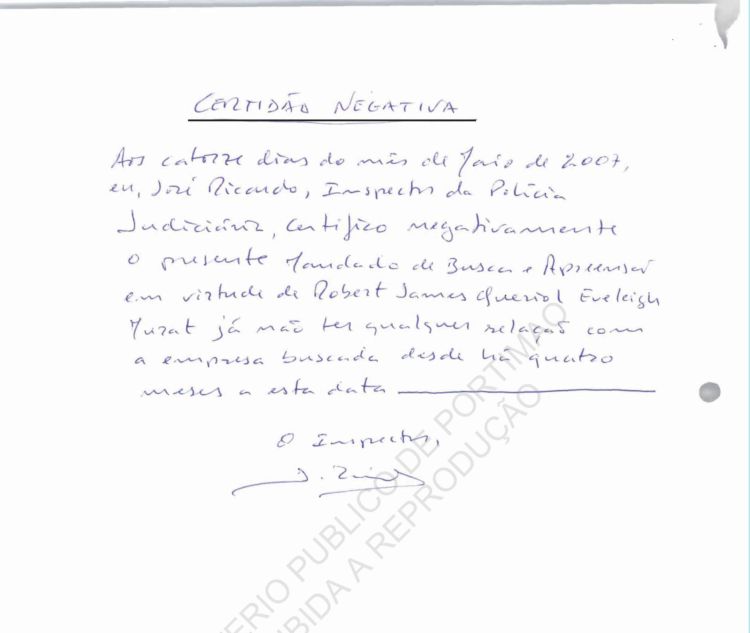 CERTIDÃO NEGATIVA
Aos catorze dias do mês de Maio de 2007,
eu, José Ricardo, Inspector da Polícia
Judiciária, Certifico negativamente
o presente Mandado de Busca e Apreensão
em virtude de Robert James Queriol Eveleigh
Murat já não ter qualquer relação com
a empresa buscada desde há quatro
meses a esta data
O Inspector,
ERIO PUBLICO DE PORTIMAO
IBIDA A REPRODUÇÃO